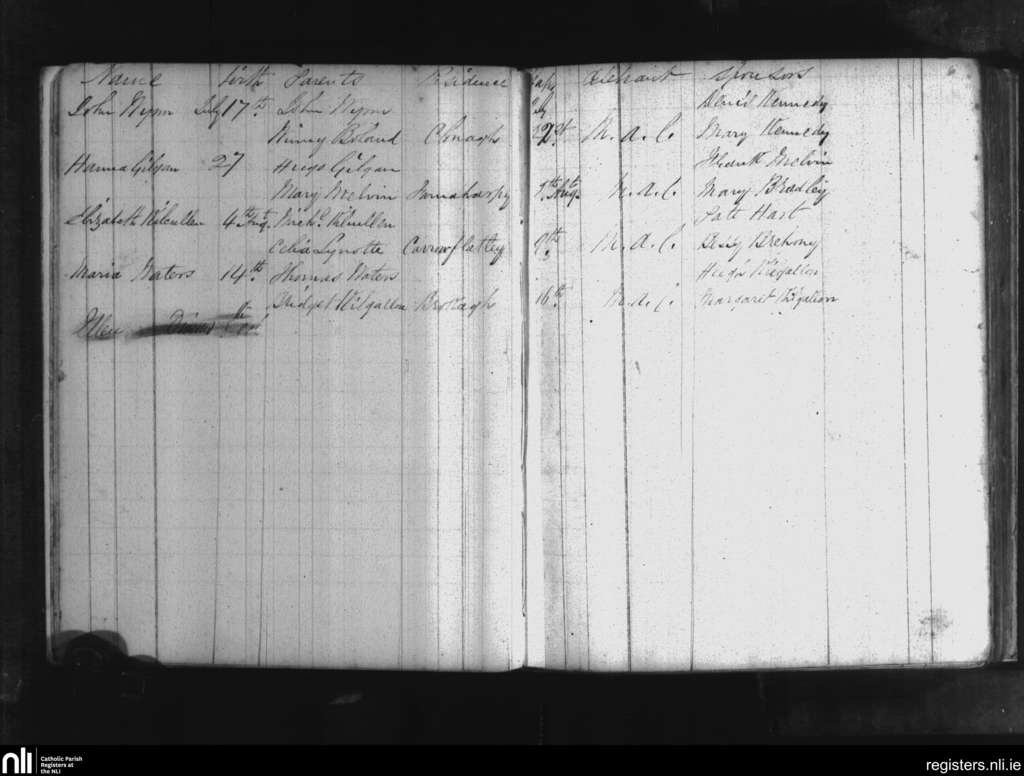 Name Birth Parents Residence Bap. Celebrant Sponsors
John Wynn July 17th John Wynn July David Kennedy
Winny Boland Clonagh 22nd M. a. C. Mary Kennedy
Hanna Gilgan 27 Hugo Gilgan Frank Melvin
Mary Melvin Aug. M. a. C. Mary Bradley
Elizabeth Kilcullen 4th Aug. Michl. Kilcullen Patt Hart
Celia Lynotte Carrowflatley 9th M. a. C. Bessy Brehony
Maria Waters 14th Thomas Waters Hugh Kilgallon
Bridget Kilgallon Brotagh 16th M. a. C. Margaret Kilgallon
Ellen
nli Catholic Parish
Registers at
the NLI
registers.nli.ie